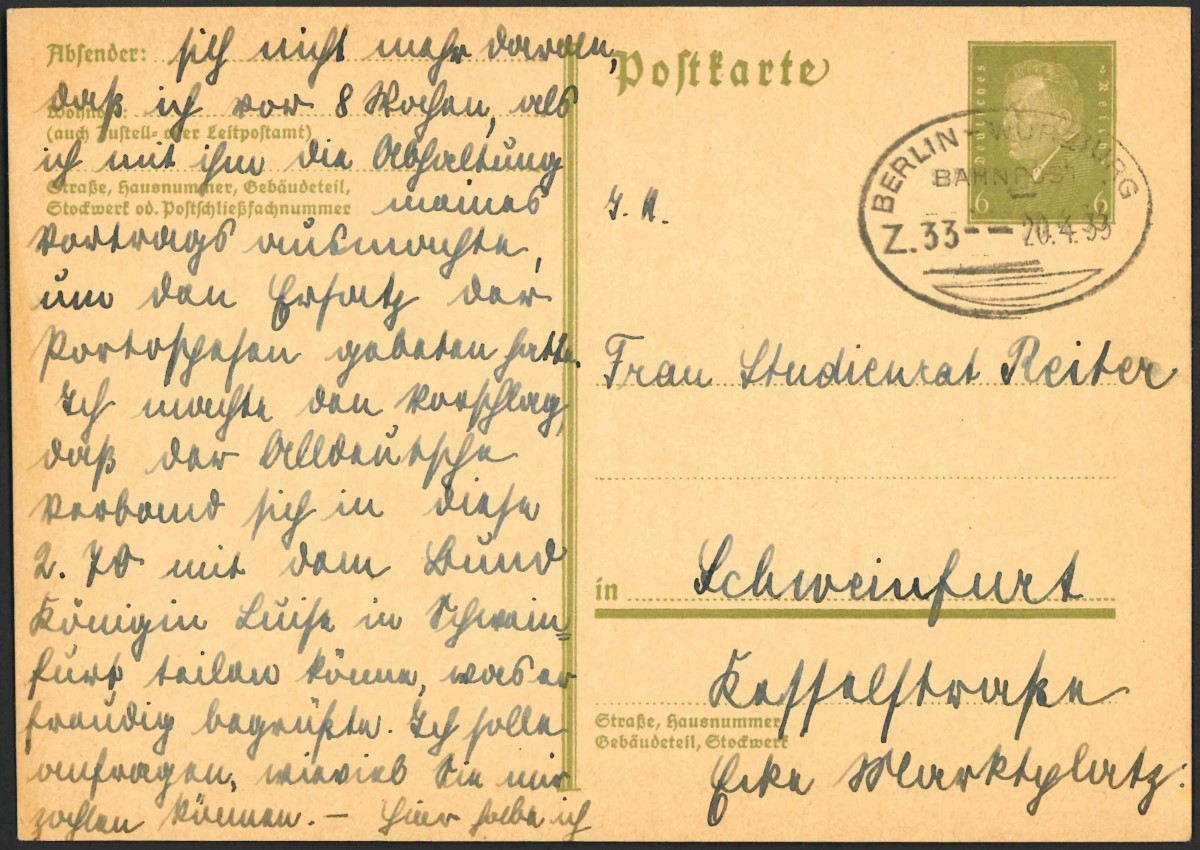 Absender: sich nicht mehr daran,
daß ich vor 8 Wochen, als
Wohnort:
(auch Zustell- oder Leitpostamt)
ich mit ihm die Abhaltung
Straße, Hausnummer, Gebäudeteil,
Stockwerk od. Postschließfachnummer
meines
Vortrags ausmachte,
um den Ersatz der
Portospesen gebeten hatte.
Ich machte den Vorschlag,
daß der Alldeutsche
Verband sich in diese
2. 70 mit dem Bund
Königin Luise in Schwein=
furt teilen könne, was er
freudig begrüßte. Ich solle
anfragen, wieviel Sie mir
zahlen können. — Hier habe ich
Postkarte
Deutsches Reich
6 6
BERLIN-WÜRZBURG
BAHNPOST
Z.33-- 20.4.33
Frau Studienrat Reiter
in Schweinfurt
Kesselstraße
Straße, Hausnummer
Gebäudeteil, Stockwerk
Ecke Marktplatz.